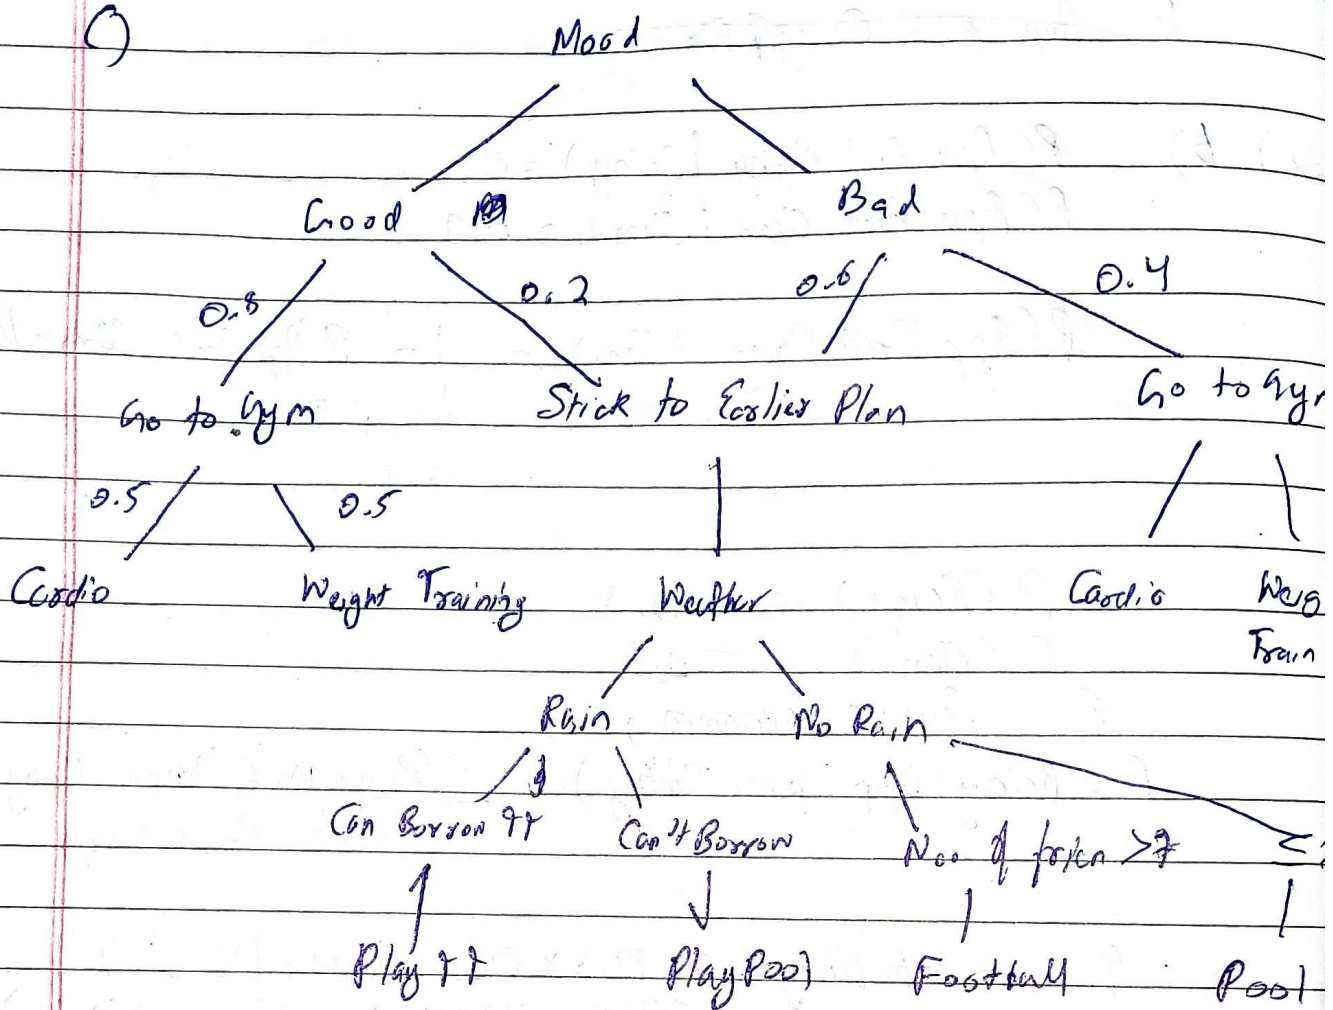 C)
Mood
Good Bad
0.8 0.2 0.6 0.4
Go to Gym Stick to Earlier Plan Go to Gy
0.5 0.5
Cardio Weight Training Weather Cardio Weig
Train
Rain No Rain
Can Borrow TT Can't Borrow No. of frien >7 ≤
Play TT Play Pool Football Pool